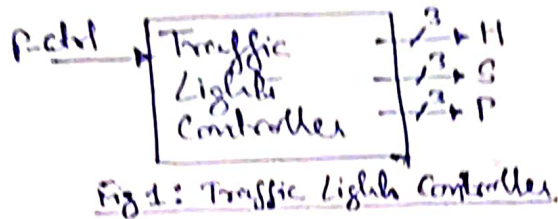 P-ctrl
Traffic
Lights
Controller
3 H
3 S
3 P
Fig 1: Traffic Lights Controller